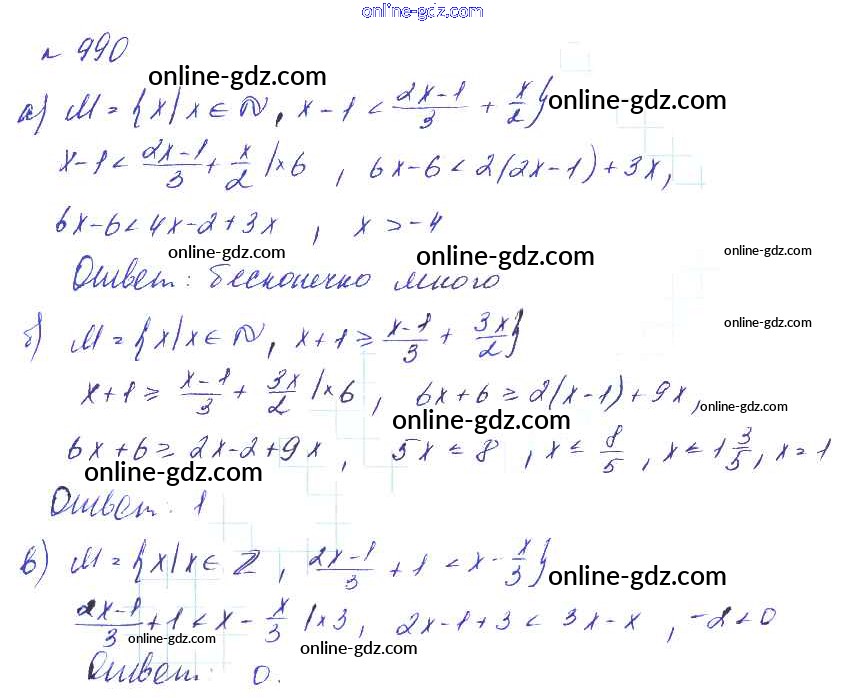 online-gdz.com
№ 990
online-gdz.com
а) M = {x | x ∈ N, x - 1 < (2x-1)/3 + x/2} online-gdz.com
x - 1 < (2x-1)/3 + x/2 | × 6 , 6x - 6 < 2(2x-1) + 3x,
6x - 6 < 4x - 2 + 3x , x > -4
online-gdz.com online-gdz.com online-gdz.com
Ответ: бесконечно много
б) M = {x | x ∈ N, x + 1 ≥ (x-1)/3 + 3x/2} online-gdz.com
x + 1 ≥ (x-1)/3 + 3x/2 | × 6 , 6x + 6 ≥ 2(x-1) + 9x, online-gdz.com
online-gdz.com
6x + 6 ≥ 2x - 2 + 9x , 5x ≤ 8 , x ≤ 8/5 , x ≤ 1 3/5, x = 1
online-gdz.com
Ответ: 1
в) M = {x | x ∈ Z , (2x-1)/3 + 1 < x - x/3} online-gdz.com
(2x-1)/3 + 1 < x - x/3 | × 3 , 2x - 1 + 3 < 3x - x , -2 < 0
online-gdz.com online-gdz.com
Ответ: 0.